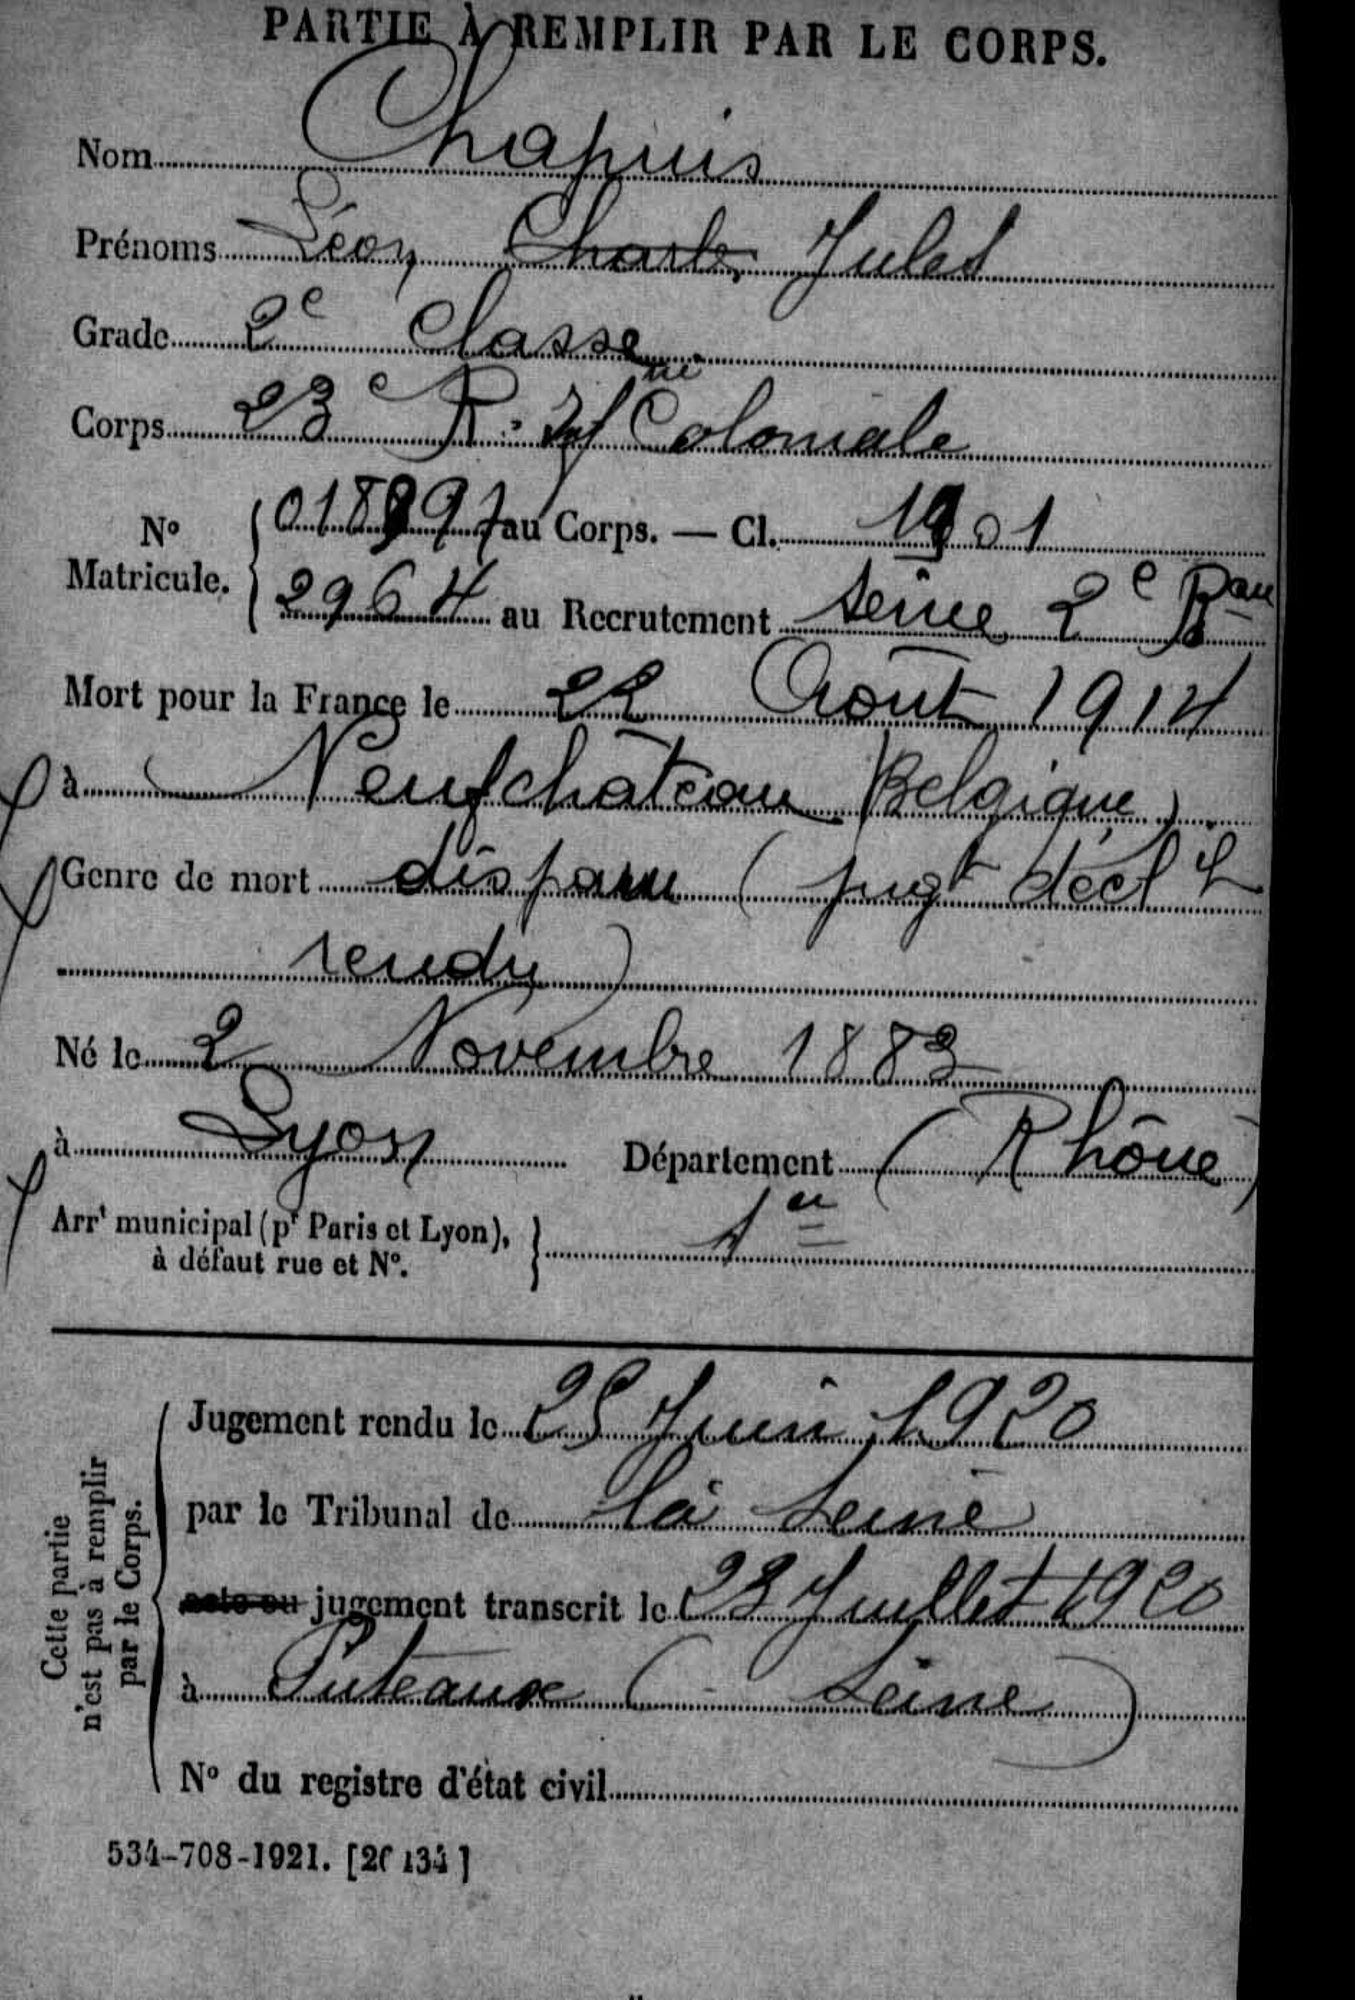 PARTIE À REMPLIR PAR LE CORPS.
Nom Chapuis
Prénoms Léon Charles Jules
Grade 2e Classe
Corps 23e R. Inf nie Coloniale
No Matricule. 018997 au Corps. — Cl. 1901
2964 au Recrutement Seine 2e Bau
Mort pour la France le 22 Août 1914
à Neufchâteau (Belgique)
Genre de mort disparu (jugt décl f
rendu)
Né le 2 Novembre 1883
à Lyon Département (Rhône)
Arrt municipal (pr Paris et Lyon),
à défaut rue et No. 1er
Cette partie
n'est pas à remplir
par le Corps.
Jugement rendu le 25 Juin 1920
par le Tribunal de la Seine
acte ou jugement transcrit le 23 Juillet 1920
à Puteaux (Seine)
No du registre d'état civil
534-708-1921. [26134]